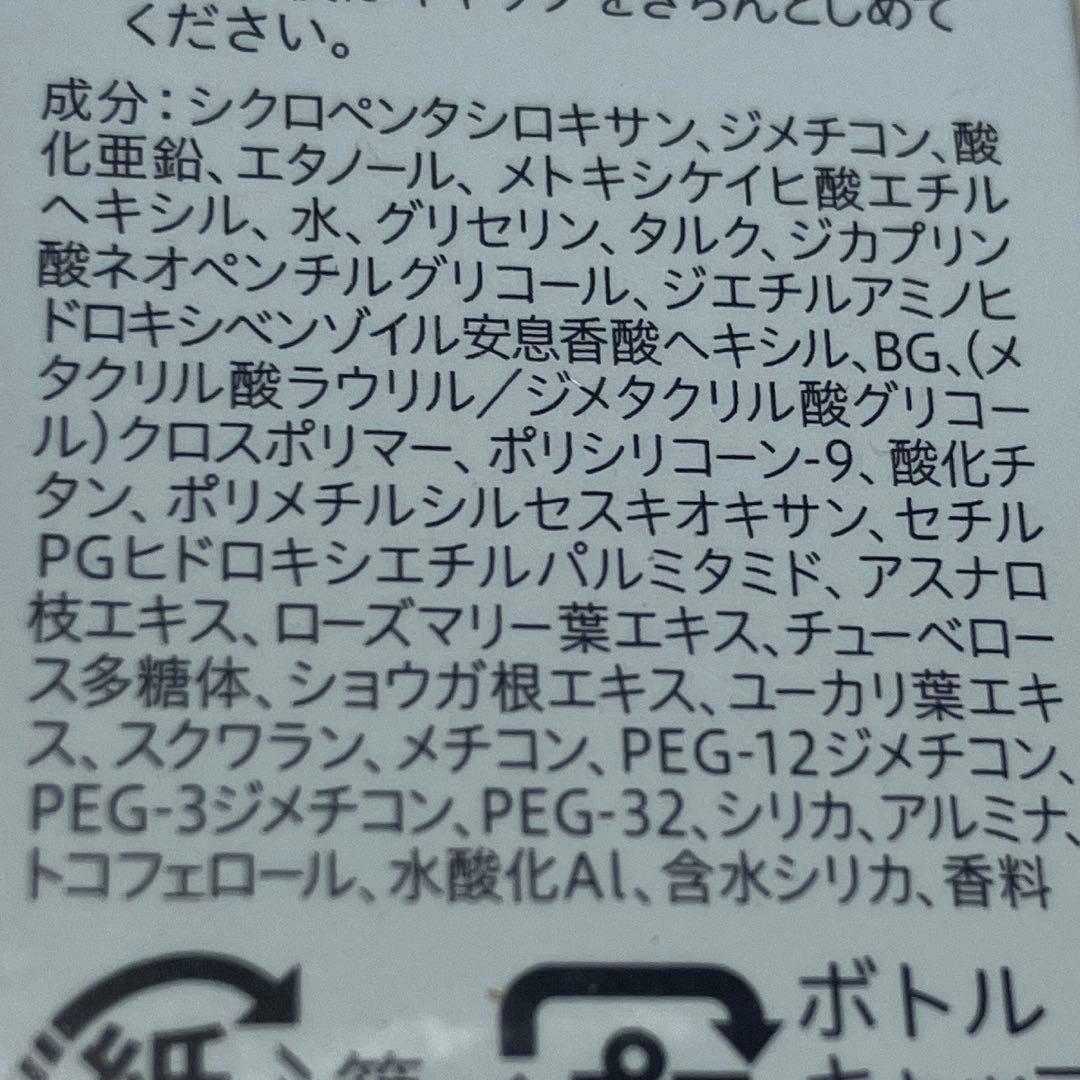 キャップをきちんとしめて
ください。
成分：シクロペンタシロキサン、ジメチコン、酸
化亜鉛、エタノール、メトキシケイヒ酸エチル
ヘキシル、水、グリセリン、タルク、ジカプリン
酸ネオペンチルグリコール、ジエチルアミノヒ
ドロキシベンゾイル安息香酸ヘキシル、BG、(メ
タクリル酸ラウリル／ジメタクリル酸グリコー
ル)クロスポリマー、ポリシリコーン-9、酸化チ
タン、ポリメチルシルセスキオキサン、セチル
PGヒドロキシエチルパルミタミド、アスナロ
枝エキス、ローズマリー葉エキス、チューベロー
ス多糖体、ショウガ根エキス、ユーカリ葉エキ
ス、スクワラン、メチコン、PEG-12ジメチコン、
PEG-3ジメチコン、PEG-32、シリカ、アルミナ、
トコフェロール、水酸化Al、含水シリカ、香料
紙
箱
ボトル